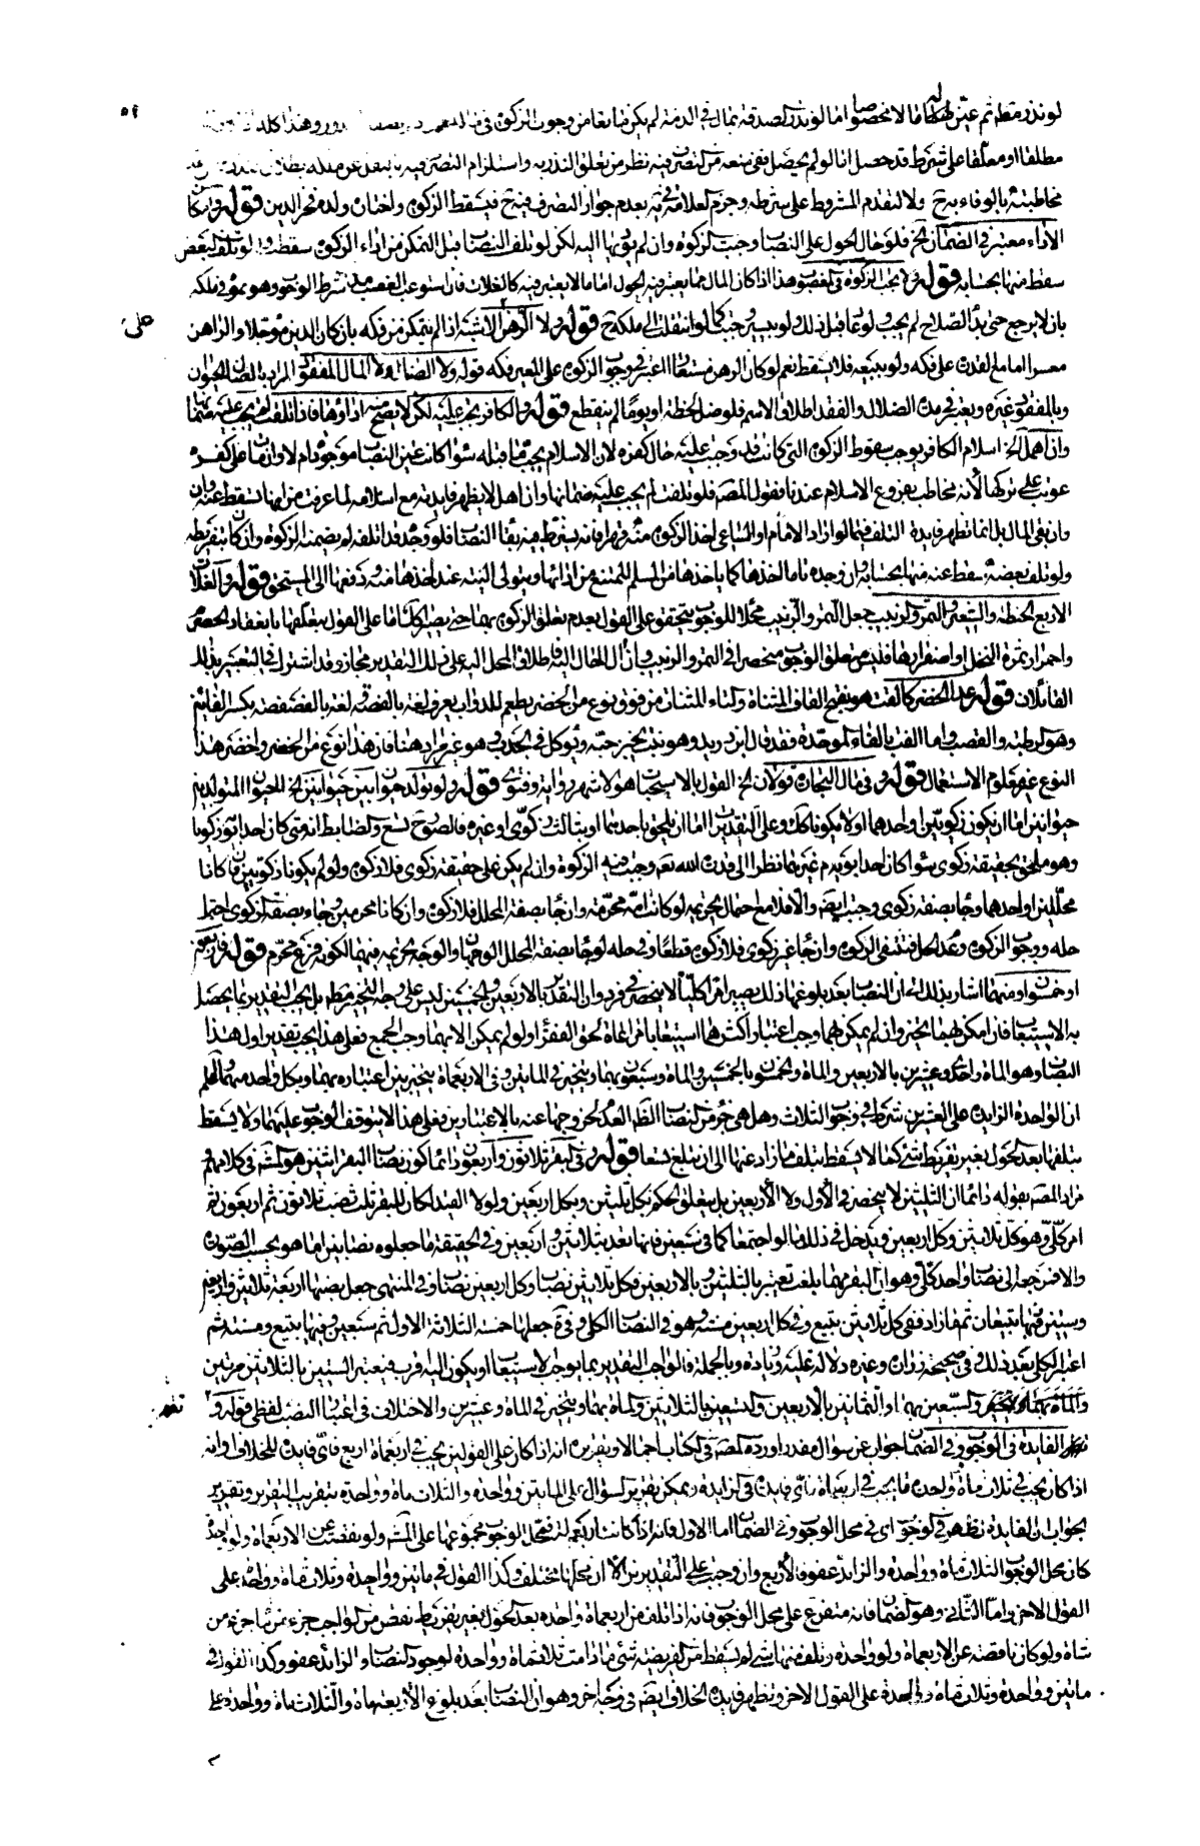 لو نذر مطلقا ثم عيّن له مالا مخصوصا اما لو نذر الصدقة بمال في الذمة لم يكن مانعا من وجوب الزكوة في وهذا كله
مطلقا او معلقا على شرط قد حصل اما لو لم يحصل ففي منعه من التصرف فيه نظر من تعلق النذر به واستلزام التصرف فيه
مخاطبته بالوفاء به ح ولا لتقدم المشروط على شرطه وجزم العلامة في بعدم جواز التصرف فيه ح فيسقط الزكوة واختاره ولده فخر الدين قوله وامكان
الاداء معتبر في الضمان الخ فلو حال الحول على النصاب وجبت الزكوة وان لم يؤدها اليه لكن لو تلف النصاب قبل التمكن من اداء الزكوة سقطت ولو تلف البعض
سقط منها بحسابه قوله ولا تجب الزكوة في المغصوب هذا اذا كان المال مما يعتبر فيه الحول اما ما لا يعتبر فيه كالغلات فان استوعب الغصب مدة شرط الوجوب وهو نموه في ملكه
بان لا يرجع حتى بدا الصلاح لم يجب ولو عاد قبل ذلك ولو بيسير وجبت كما لو انتقلت الى ملكه ح قوله ولا الرهن الاشبه اذا لم يتمكن من فكه بان كان الدين مؤجلا والراهن
على
معسرا اما مع القدرة على فكه ولو ببيعه فلا يسقط نعم لو كان الرهن مستعارا اعتبر في وجوب الزكوة على المعير فكه قوله ولا الضال ولا المال المفقود المراد بالضال الحيوان
وبالمفقود غيره ويعتبر في مدة الضلال والفقد اطلاق الاسم فلو ضل لحظة او يوما لم ينقطع قوله والكافر تجب عليه لكن لا يصح منه اداؤها فاذا تلفت لم يجب عليه ضمانها
وان اهمل الخ اسلام الكافر يوجب سقوط الزكوة التي كانت قد وجبت عليه حال كفره لان الاسلام يجب ما قبله سواء كانت عين النصاب موجودة ام لا وان مات على كفره
عوقب على تركها لانه مخاطب بفروع الاسلام عندنا فقول المصه فلو تلفت لم يجب عليه ضمانها وان اهمل لا يظهر فايدته مع اسلامه لما عرفت من انها تسقط عنه وان
وان بقى المال بل انما تظهر فايدة التلف فيما لو اراد الامام او الساعي اخذ الزكوة منه قهرا فانه يشترط فيه بقاء النصاب فلو وجده قد اتلفه لم يضمنه الزكوة وان كان بتفريطه
ولو تلف بعضه سقط عنه منها بحسابه وان وجده تاما اخذها كما ياخذها من المسلم الممتنع من ادائها ويتولى النية عند اخذها منه ودفعها الى المستحق قوله والغلات
الاربع الحنطة والشعير والتمر والزبيب جعل التمر والزبيب محلا للوجوب يتحقق على القول بعدم تعلق الزكوة بهما حتى يصير كذلك اما على القول بتعلقها بانعقاد الحصرم
واحمرار ثمرة النخل او اصفرارها فليس متعلق الوجوب منحصرا في التمر والزبيب وان آل الحال اليه فاطلاق المحل اليه على ذلك التقدير مجاز وقد اشترك في التعبير بذلك
القائلان قوله عدا الخضر كالقت هو بفتح القاف المثناة والتاء المثناة من فوق نوع من الخضر يطعم للدواب يعرف لغة بالفصة ولغة بالفصفصة بكسر الفائين
وهو الرطبة والقصب واما الفث بالفاء الموحدة فقد قال ابن دريد وهو نبت يخبز حبه ويوكل في الجدب وهو غير مراد هنا فان هذا نوع من الخضر والخضر هذا
النوع غير معلوم الاستعمال قوله وفي مال التجارة قولان الخ القول بالاستحباب هو الاشهر رواية وفتوى قوله ولو تولد حيوان بين حيوانين الخ الحيوان المتولد بين
حيوانين اما ان يكونا زكويين او احدهما او لا يكونا كك وعلى التقديرات اما ان يلحق باحدهما او بثالث زكوي او غيره فالصور تسع والضابط انه متى كان احد ابويه زكويا
وهو ملحق بحقيقة زكوي سواء كان احد ابويه ام غيرهما نظرا الى قدرة الله تعه وجبت فيه الزكوة وان لم يكن على حقيقة زكوي فلا زكوة ولو لم يكونا زكويين فان كانا
محللين او احدهما وجاء بصفة زكوي وجبت ايضه والا فلا مع احتمال تحريمه لو كانت امه محرمة وان جاء بصفة المحلل فلا زكوة وان كانا محرمين وجاء بصفة زكوي احتمل
حله ووجوب الزكوة وعدم الحل فتنتفي الزكوة وان جاء غير زكوي فلا زكوة قطعا وفي حله لو جاء بصفة المحلل الوجهان والوجه تحريمه فيهما لكونه فرع محرم قوله فاربعون
او خمسون او منهما اشار بذلك الى ان النصاب بعد بلوغها ذلك يصير امرا كليا لا ينحصر في فرد وان التقدير بالاربعين والخمسين ليس على وجه التخيير مطلقا بل يجب التقدير بما يحصل
به الاستيعاب فان امكن بهما تخير وان لم يمكن بهما وجب اعتبار اكثرهما استيعابا مراعاة لحق الفقراء ولو لم يمكن الا بهما وجب الجمع فعلى هذا يجب تقدير اول هذا
النصاب وهو المائة واحدى وعشرين بالاربعين والمائة والخمسون بالخمسين والمائة وسبعون بهما ويتخير في المأتين وفي الاربعمائة يتخير بين اعتباره بهما وبكل واحد منهما واعلم
ان الواحدة الزايدة على العشرين شرط في وجوب الثلاث وهل هي جزء من النصاب الظه العدم لخروجها عنه بالاعتبارين فعلى هذا لا يتوقف الوجوب عليها ولا يسقط
بتلفها بعد الحول بغير تفريط شئ كما لا يسقط بتلف ما زاد عنها الى ان تبلغ تسعا قوله وفي البقر ثلاثون واربعون دائما كون نصاب البقر اثنين هو المشه في كلامهم و
مراد المصه بقوله دائما ان الثلثين لا ينحصر في الاول ولا الاربعين بل يتعلق الحكم بكل ثلثين وبكل اربعين ولولا القيد لكان للبقر ثلث نصب ثلاثون ثم اربعون ثم
امر كلي وهو كل ثلاثين وكل اربعين ويدخل في ذلك ما لو اجتمعا كما في سبعين فانها تعد بثلاثين واربعين وفي الحقيقة ما جعلوه نصابين انما هو بحسب الصورة
والا فمرجعه الى نصاب واحد كلي وهو ان البقر مهما بلغت تعتبر بالثلثين وبالاربعين فكل ثلاثين نصاب وكل اربعين نصاب وفي المنتهى جعل نصبها اربعة ثلاثين واربعين
وستين ففيها تبيعان ثم ما زاد ففي كل ثلاثين تبيع وفي كل اربعين مسنة وهو في النصاب الكلي وفي جعلها خمسة الثلاثة الاول ثم سبعين وفيها تبيع ومسنة ثم
اعتبر الكلي بعد ذلك وفي صحيحة زرارة وغيره دلالة عليه وزيادة وبالجملة فالواجب التقدير بما يوجب الاستيعاب او يكون اليه اقرب فيعتبر الستين بالثلاثين مرتين
والسبعين بهما والثمانين بالاربعين والتسعين بالثلاثين والمائة بهما ويتخير في المائة وعشرين والاختلاف في اعتبار النصب لفظي قوله و
تظهر الفايدة في الوجوب وفي الضمان جواب عن سؤال مقدر اورده المصه في الكتاب اجمالا وتقريره انه اذا كان على القولين يجب في اربعمائة اربع فاي فايدة للخلاف او انه
اذا كان يجب في ثلاث مائة وواحدة ما يجب في اربعمائة فاي فايدة في الزايدة ويمكن تقرير السؤال على المايتين وواحدة والثلاث مائة وواحدة بتقريب التقرير وتقرير
الجواب ان الفايدة تظهر في الوجوب اي في محل الوجوب وفي الضمان اما الاول فانه اذا كانت اربعمائة فمحل الوجوب مجموعها على المشه ولو نقصت عن الاربعمائة ولو واحدة
كان محل الوجوب الثلاث مائة وواحدة والزائد عفو فالاربع وان وجبت على التقديرين الا ان محلها مختلف وكذا القول في مايتين وواحدة وثلاث مائة وواحدة على
القول الاخر واما الثاني وهو الضمان فانه متفرع على محل الوجوب فانه اذا تلف من اربعمائة واحدة بعد الحول بغير تفريط نقص من الواجب جزء من مائة جزء من
شاة ولو كان ناقصة عن الاربعمائة ولو واحدة وتلف منها شئ لم يسقط من الفريضة شئ ما دامت ثلاثمائة وواحدة لوجود النصاب والزائد عفو وكذا القول في
مايتين وواحدة وثلاث مائة وواحدة على القول الاخر وتظهر فايدة الخلاف ايضه في وجه اخر وهو ان النصاب بعد بلوغ الاربعمائة والثلاث مائة وواحدة على